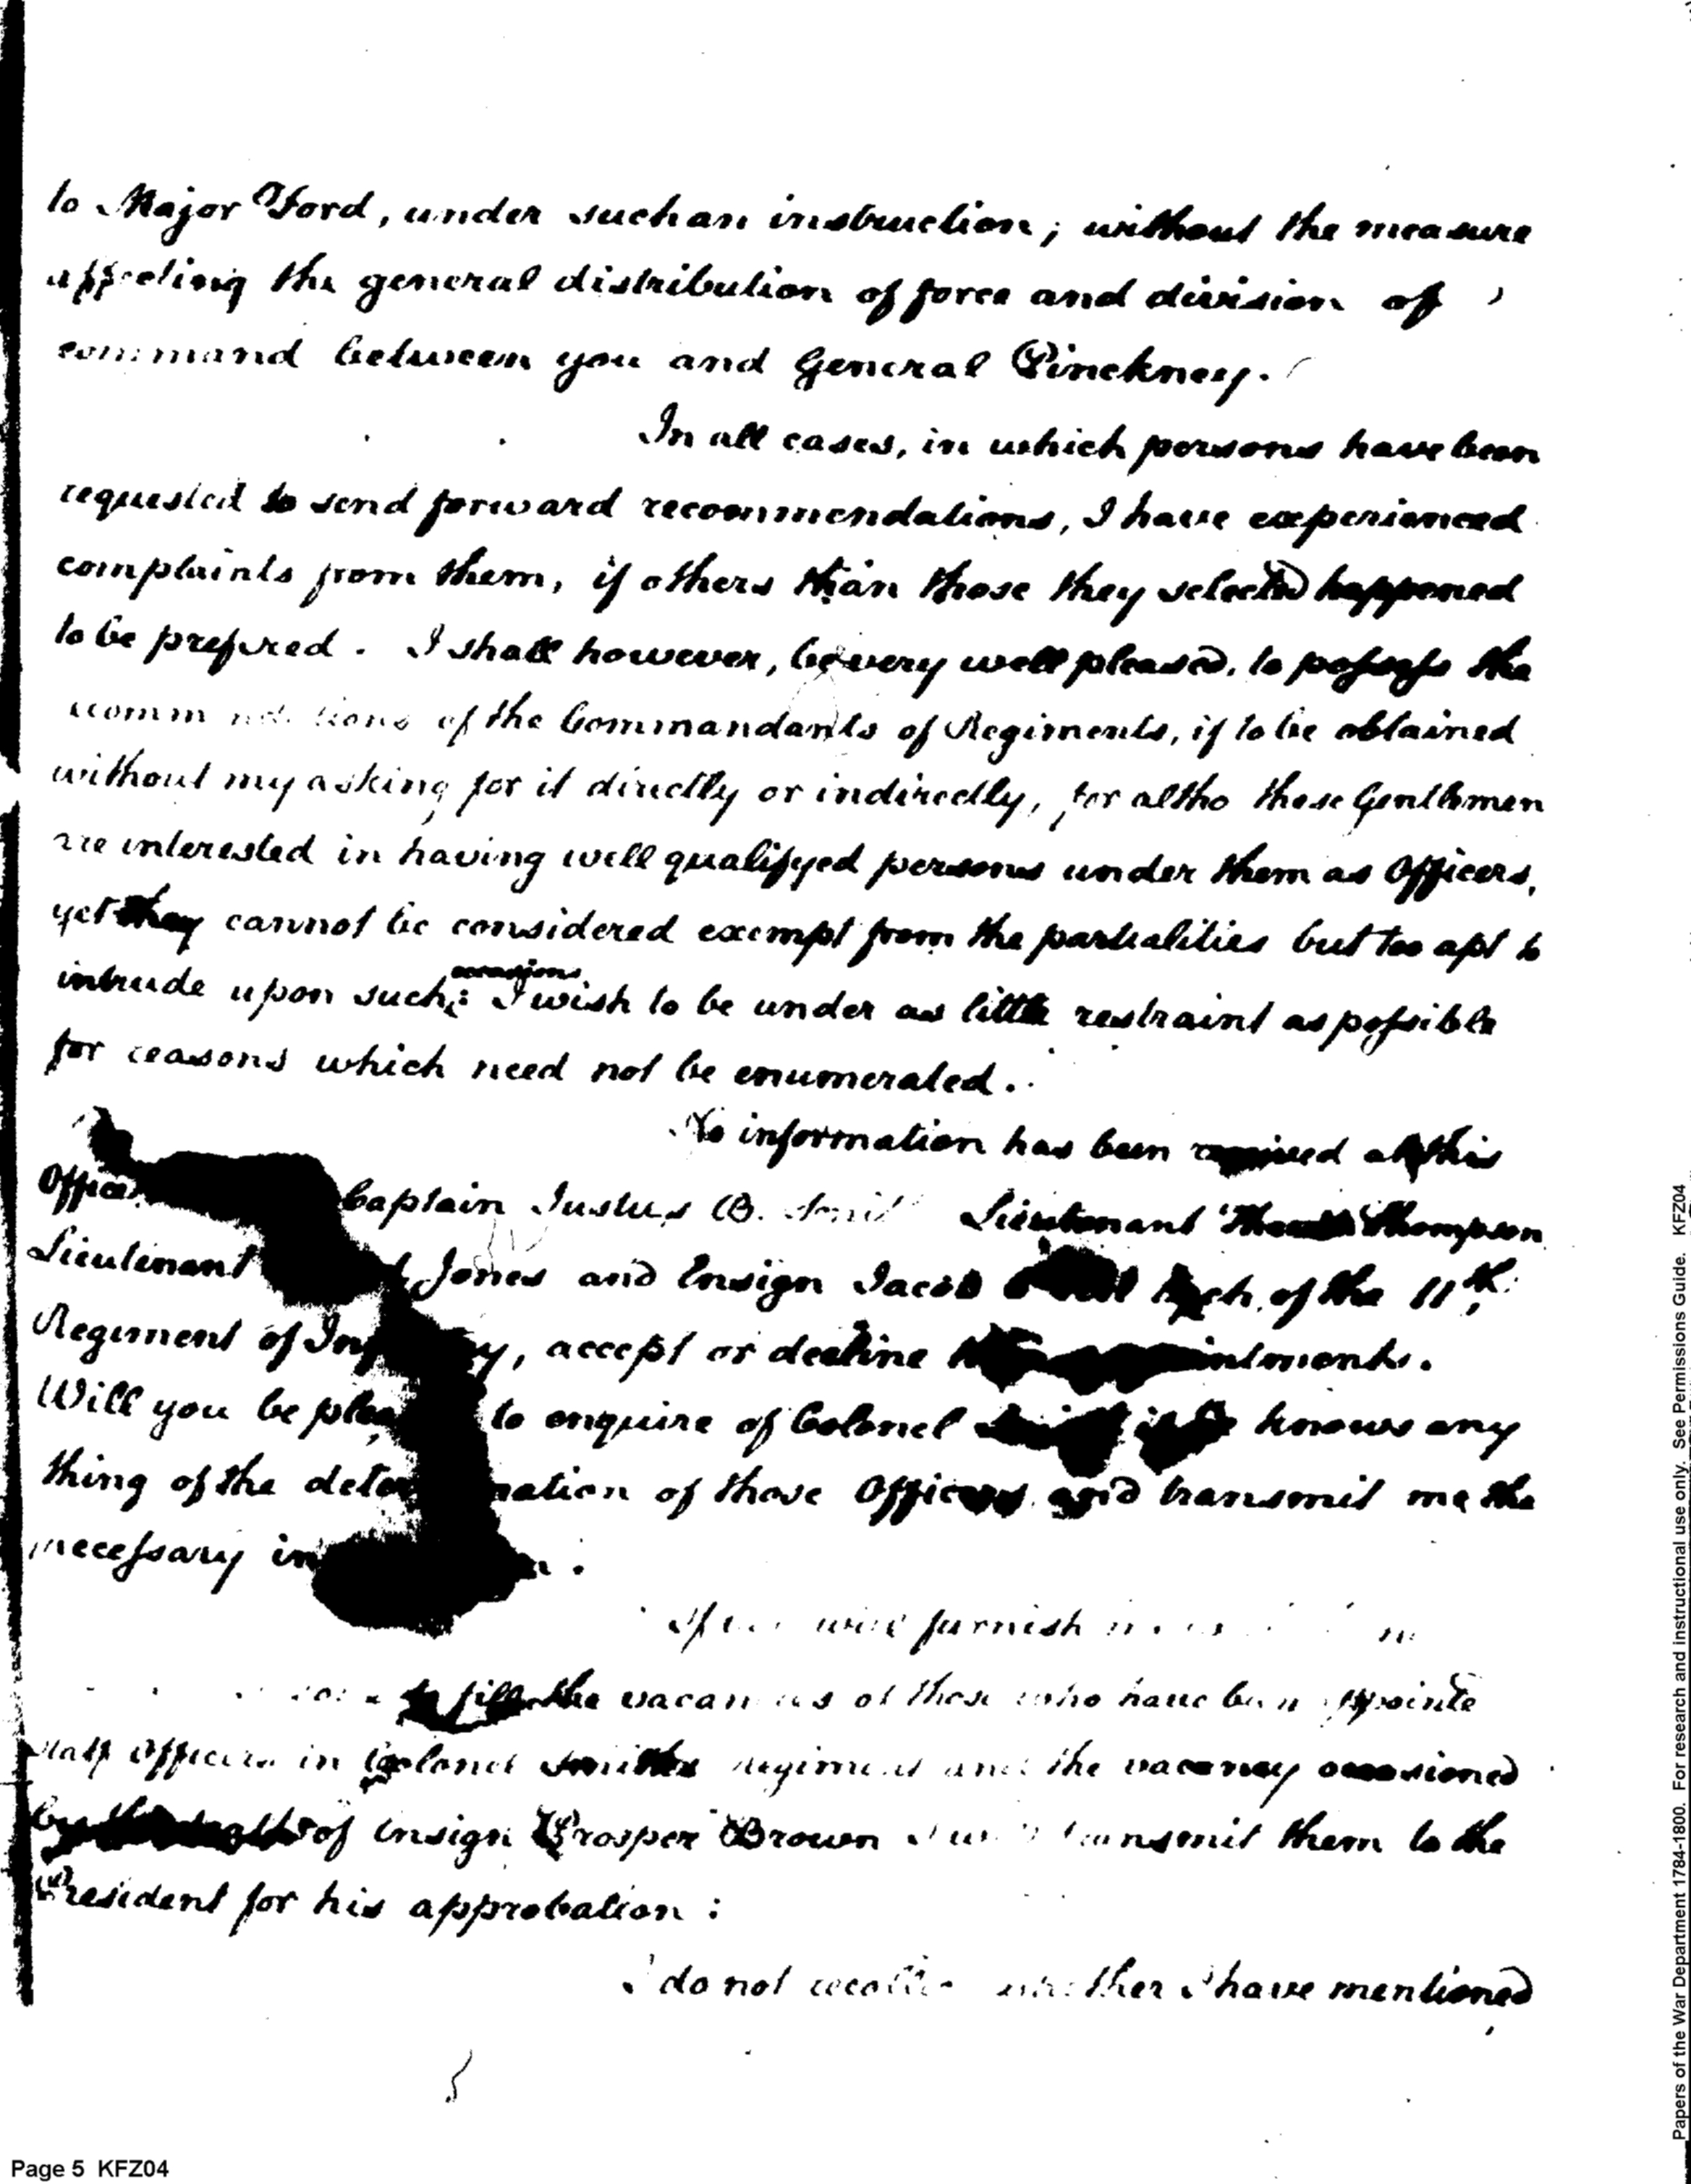 to Major Ford, under such an instruction; without the measure
affecting the general distribution of force and division of
command between you and General Pinckney.
In all cases, in which persons have been
requested to send forward recommendations, I have experienced
complaints from them, if others than those they selected happened
to be prefered. I shall however, be very well pleased, to possess the
of the Commandants of Regiments, if to be obtained
without my asking for it directly or indirectly, for altho these Gentlemen
are interested in having well qualifyed persons under them as Officers,
yet they cannot be considered exempt from the partialities but too apt to
intrude upon such occasions: I wish to be under as little restraint as possible
for reasons which need not be enumerated.
No information has been received at this
Office Captain Justus B. Lieutenant Thompson
Lieutenant Jones and Ensign Jacob of the 11th
Regiment of accept or decline
Will you be to enquire of Colonel knows any
thing of the of those Officers and transmit me the
necessary
will furnish
to fill the vacancies of those who have been appointed
Staff Officers in Colonel Smiths regiment and the vacancy occasioned
by the of Ensign Prosper Brown I transmit them to the
President for his approbation:
I do not recollect whether I have mentioned
5
Page 5 KFZ04
Papers of the War Department 1784-1800. For research and instructional use only. See Permissions Guide. KFZ04